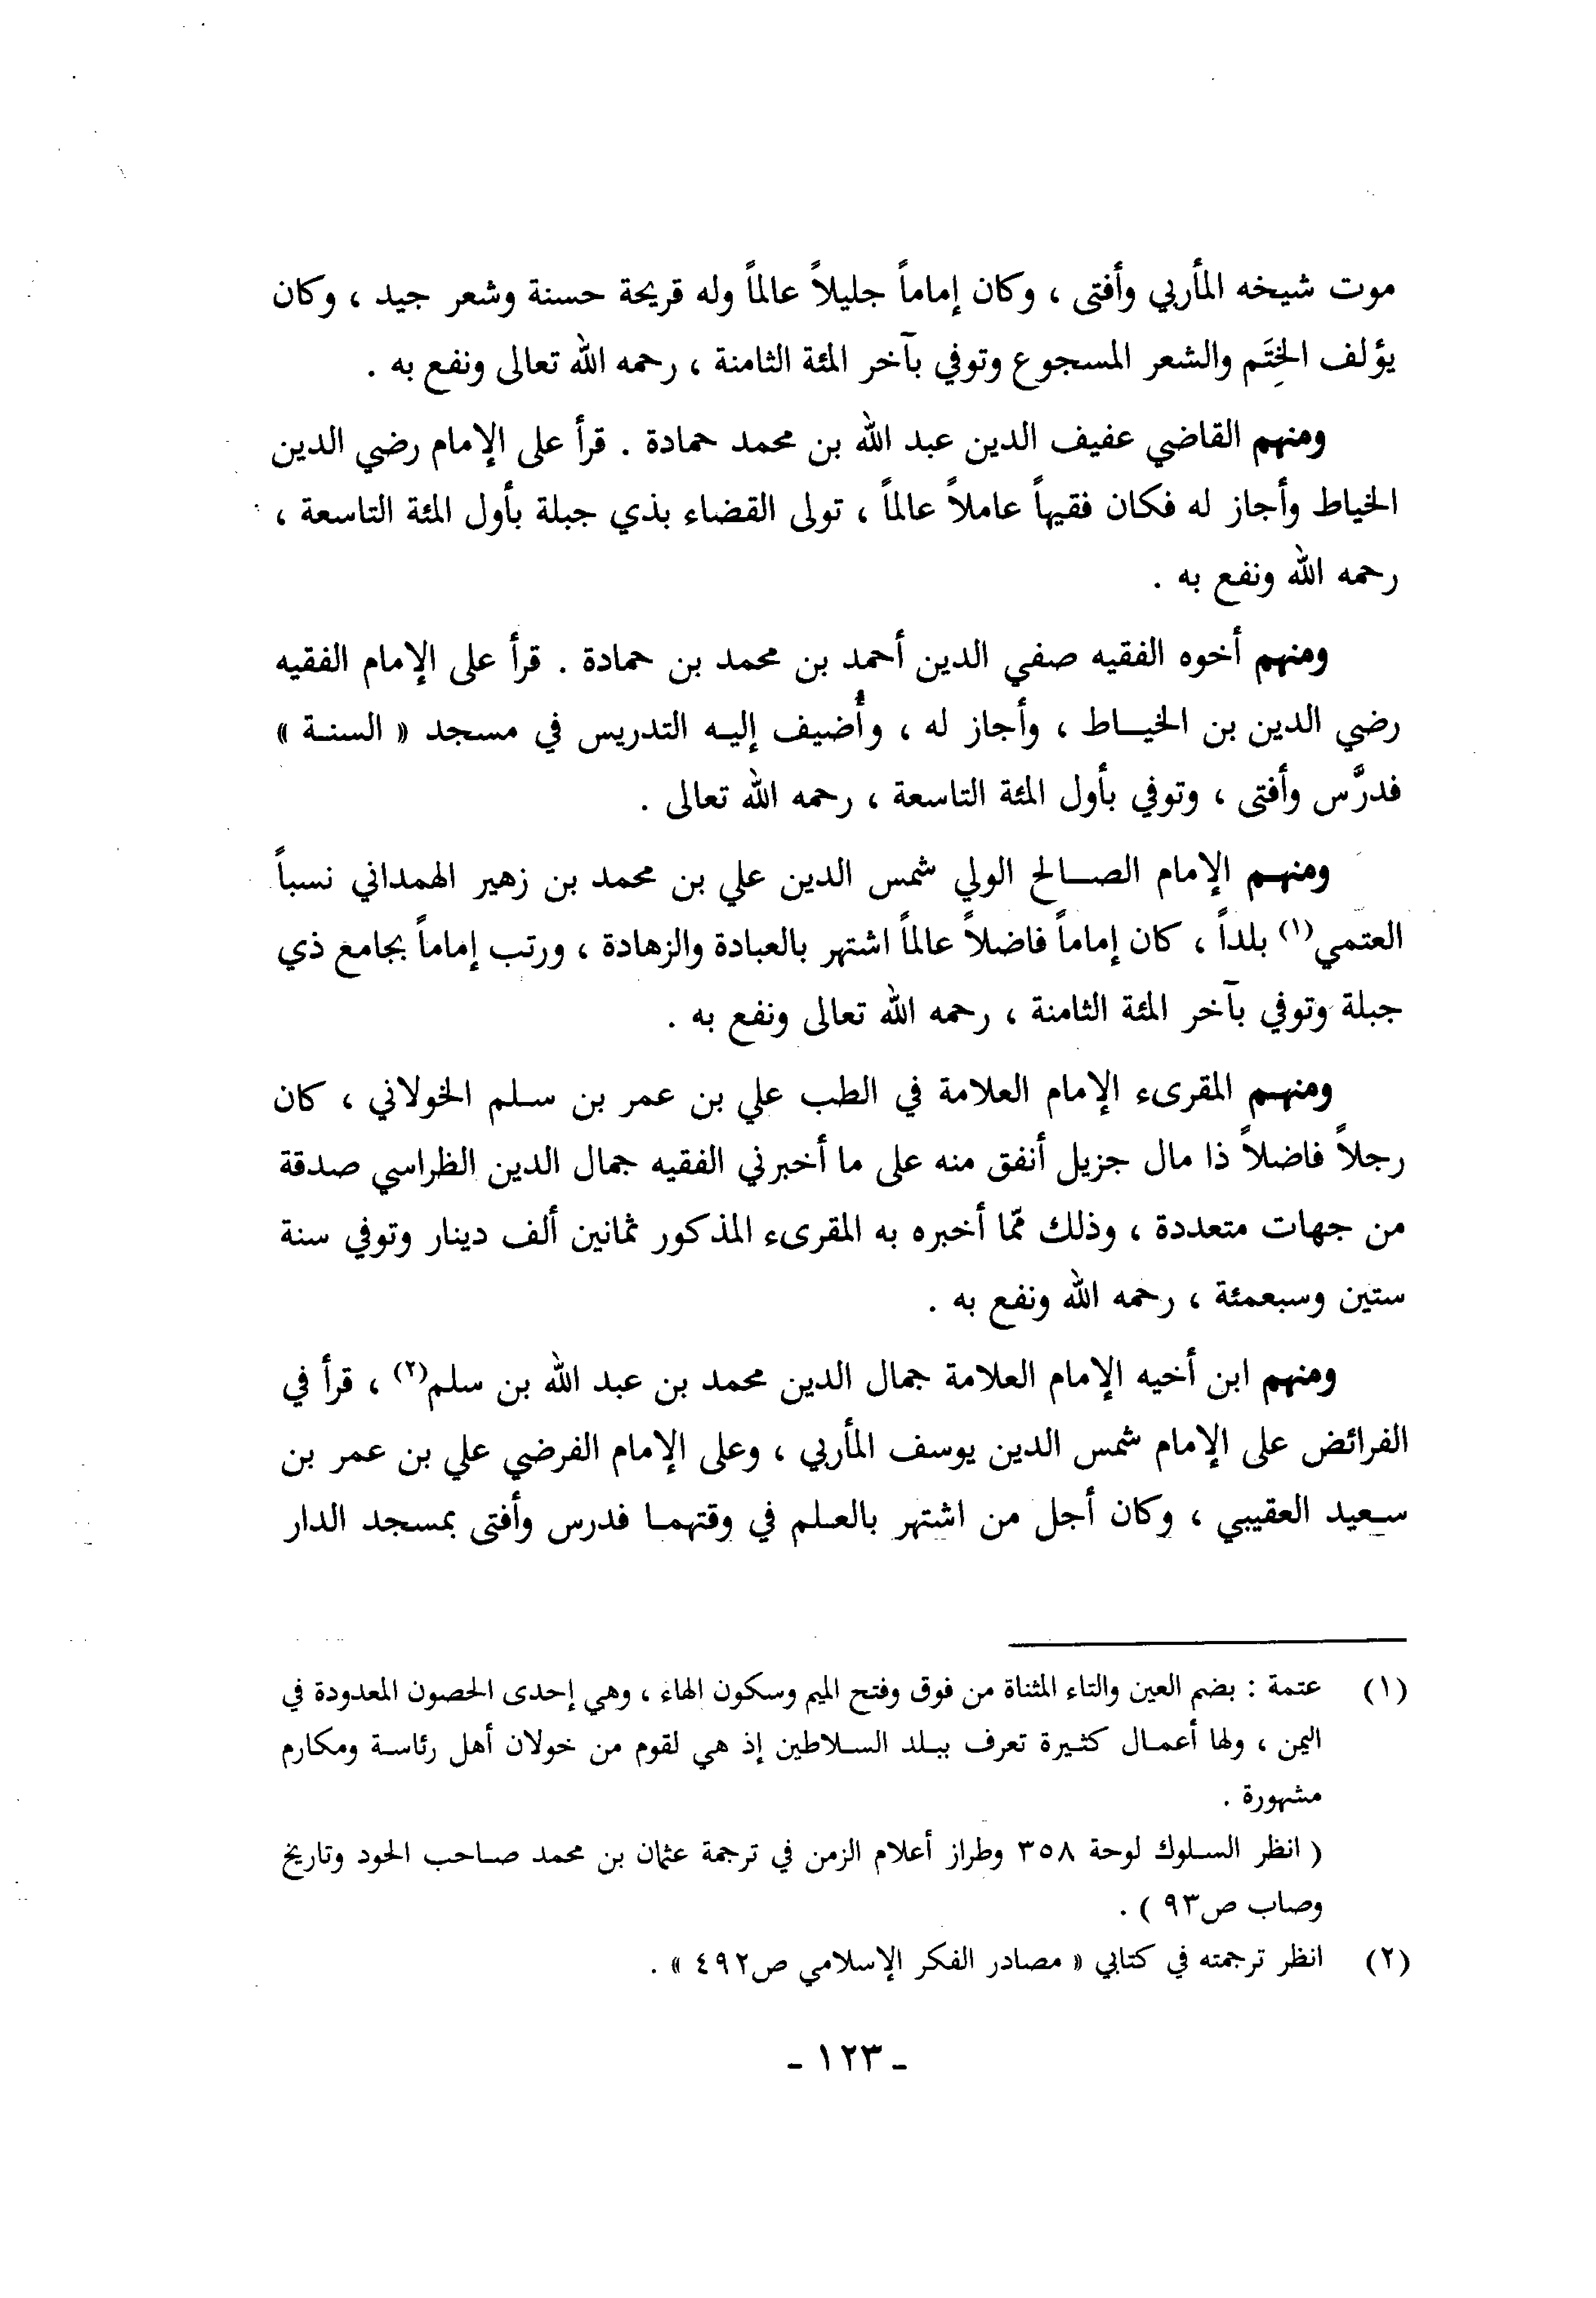 موت شيخه المأربي وأفتى ، وكان إماماً جليلاً عالماً وله قريحة حسنة وشعر جيد ، وكان
يؤلف الخِتَم والشعر المسجوع وتوفي بآخر المئة الثامنة ، رحمه الله تعالى ونفع به .
ومنهم القاضي عفيف الدين عبد الله بن محمد حمادة . قرأ على الإمام رضي الدين
الخياط وأجاز له فكان فقيهاً عاملاً عالماً ، تولى القضاء بذي جبلة بأول المئة التاسعة ،
رحمه الله ونفع به .
ومنهم أخوه الفقيه صفي الدين أحمد بن محمد بن حمادة . قرأ على الإمام الفقيه
رضي الدين بن الخياط ، وأجاز له ، وأُضيف إليه التدريس في مسجد « السنة »
فدرَّس وأفتى ، وتوفي بأول المئة التاسعة ، رحمه الله تعالى .
ومنهم الإمام الصالح الولي شمس الدين علي بن محمد بن زهير الهمداني نسباً
العتمي(١) بلداً ، كان إماماً فاضلاً عالماً اشتهر بالعبادة والزهادة ، ورتب إماماً بجامع ذي
جبلة وتوفي بآخر المئة الثامنة ، رحمه الله تعالى ونفع به .
ومنهم المقرىء الإمام العلامة في الطب علي بن عمر بن سلم الخولاني ، كان
رجلاً فاضلاً ذا مال جزيل أنفق منه على ما أخبرني الفقيه جمال الدين الظراسي صدقة
من جهات متعددة ، وذلك ممّا أخبره به المقرىء المذكور ثمانين ألف دينار وتوفي سنة
ستين وسبعمئة ، رحمه الله ونفع به .
ومنهم ابن أخيه الإمام العلامة جمال الدين محمد بن عبد الله بن سلم(٢) ، قرأ في
الفرائض على الإمام شمس الدين يوسف المأربي ، وعلى الإمام الفرضي علي بن عمر بن
سعيد العقيبي ، وكان أجل من اشتهر بالعلم في وقتهما فدرس وأفتى بمسجد الدار
(١) عتمة : بضم العين والتاء المثناة من فوق وفتح الميم وسكون الهاء ، وهي إحدى الحصون المعدودة في
اليمن ، ولها أعمال كثيرة تعرف ببلد السلاطين إذ هي لقوم من خولان أهل رئاسة ومكارم
مشهورة .
( انظر السلوك لوحة ٣٥٨ وطراز أعلام الزمن في ترجمة عثمان بن محمد صاحب الحود وتاريخ
وصاب ص٩٣ ) .
(٢) انظر ترجمته في كتابي « مصادر الفكر الإسلامي ص٤٩٢ » .
- ١٢٣ -